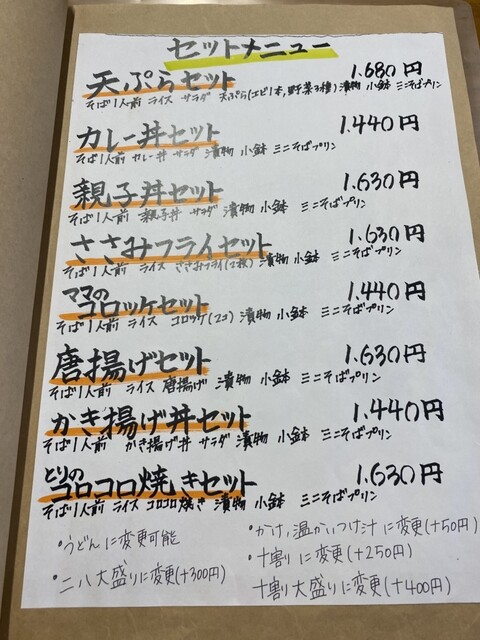 セットメニュー
天ぷらセット 1.680円
そば1人前 ライス サラダ 天ぷら(エビ1本,野菜3種) 漬物 小鉢 ミニそばプリン
カレー丼セット 1.440円
そば1人前 カレー丼 サラダ 漬物 小鉢 ミニそばプリン
親子丼セット 1.630円
そば1人前 親子丼 サラダ 漬物 小鉢 ミニそばプリン
ささみフライセット 1.630円
そば1人前 ライス ささみフライ(2枚) 漬物 小鉢 ミニそばプリン
ママの
コロッケセット 1.440円
そば1人前 ライス コロッケ(2コ) 漬物 小鉢 ミニそばプリン
唐揚げセット 1.630円
そば1人前 ライス 唐揚げ 漬物 小鉢 ミニそばプリン
かき揚げ丼セット 1.440円
そば1人前 かき揚げ丼 サラダ 漬物 小鉢 ミニそばプリン
とりの
コロコロ焼きセット 1.630円
そば1人前 ライス コロコロ焼き 漬物 小鉢 ミニそばプリン
・うどんに変更可能
・二八大盛りに変更(+300円)
・かけ,温かいつけ汁に変更(+50円)
・十割りに変更(+250円)
十割大盛りに変更(+400円)